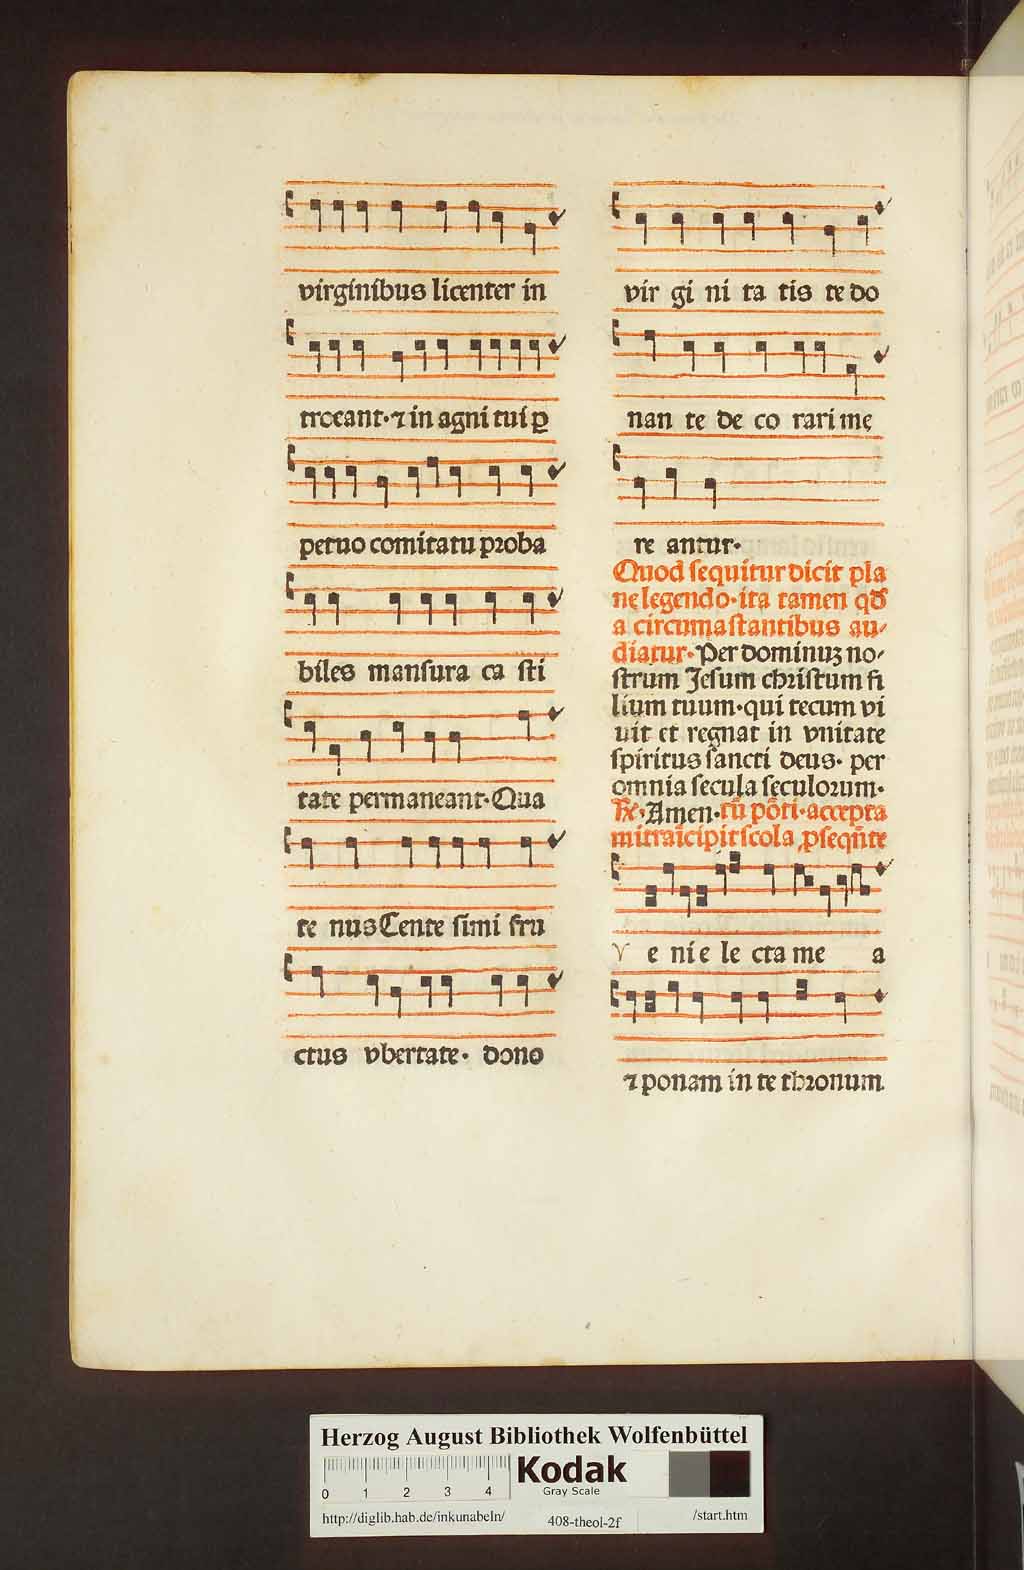 virginibus licenter in
troeant·⁊ in agni tui ꝑ
petuo comitatu proba
biles mansura ca sti
tate permaneant·Qua
te nus Cente simi fru
ctus vbertate· dono
vir gi ni ta tis te do
nan te de co rari me
re antur·
Quod sequitur dicit pla
ne legendo·ita tamen qđ
a circumastantibus au⸗
diatur·Per dominuʒ no⸗
strum Jesum christum fi
lium tuum·qui tecum vi
uit et regnat in vnitate
spiritus sancti deus· per
omnia secula seculorum·
℟·Amen·tū pōti·accepta
mitra ī cipit scola ,pseqn̄te
V e ni e le cta me a
⁊ ponam in te thronum
Herzog August Bibliothek Wolfenbüttel
0 1 2 3 4
Kodak
Gray Scale
http://diglib.hab.de/inkunabeln/ 408-theol-2f /start.htm